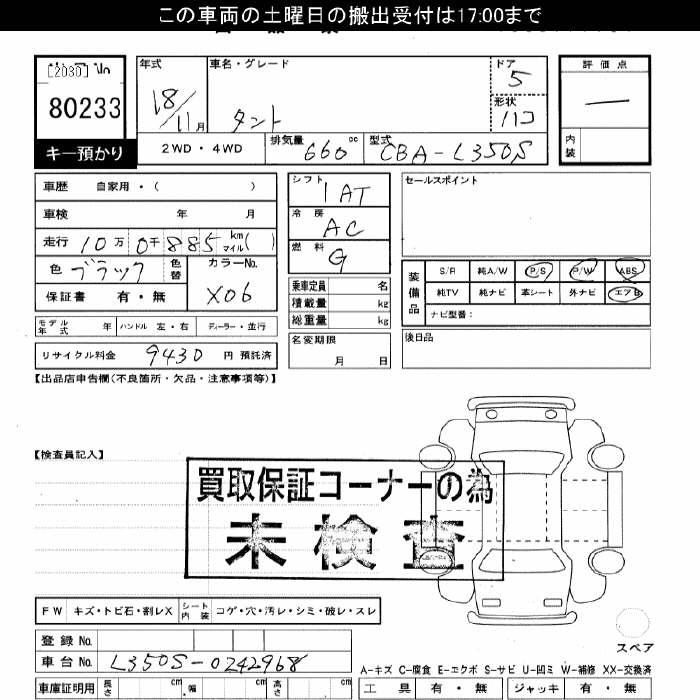 この車両の土曜日の搬出受付は17:00まで
80233
キー預かり
年式 18/11月
車名・グレード タント
ドア 5
形状 ハコ
2WD・4WD
排気量 660 cc
型式 CBA-L350S
評価点 —
内装
車歴 自家用・( )
車検 年 月
走行 10万0千885 km マイル( )
色 ブラック 色替
カラーNo. X06
保証書 有・無
シフト IAT
冷房 AC
燃料 G
乗車定員 名
積載量 kg
総重量 kg
セールスポイント
装備品
S/R 純A/W P/S P/W ABS
純TV 純ナビ 革シート 外ナビ エアB
ナビ型番:
モデル年式 年 ハンドル 左・右 ディーラー・並行
リサイクル料金 9430 円 預託済
名変期限 月 日
後日品
【出品店申告欄(不良箇所・欠品・注意事項等)】
【検査員記入】
買取保証コーナーの為
未検査
FW キズ・トビ石・割レX
シート内装 コゲ・穴・汚レ・シミ・破レ・スレ
スペア
登録No.
車台No. L350S-0242968
A-キズ C-腐食 E-エクボ S-サビ U-凹ミ W-補修 XX-交換済
車庫証明用 長さ cm 幅 cm 高さ cm
工具 有・無 ジャッキ 有・無